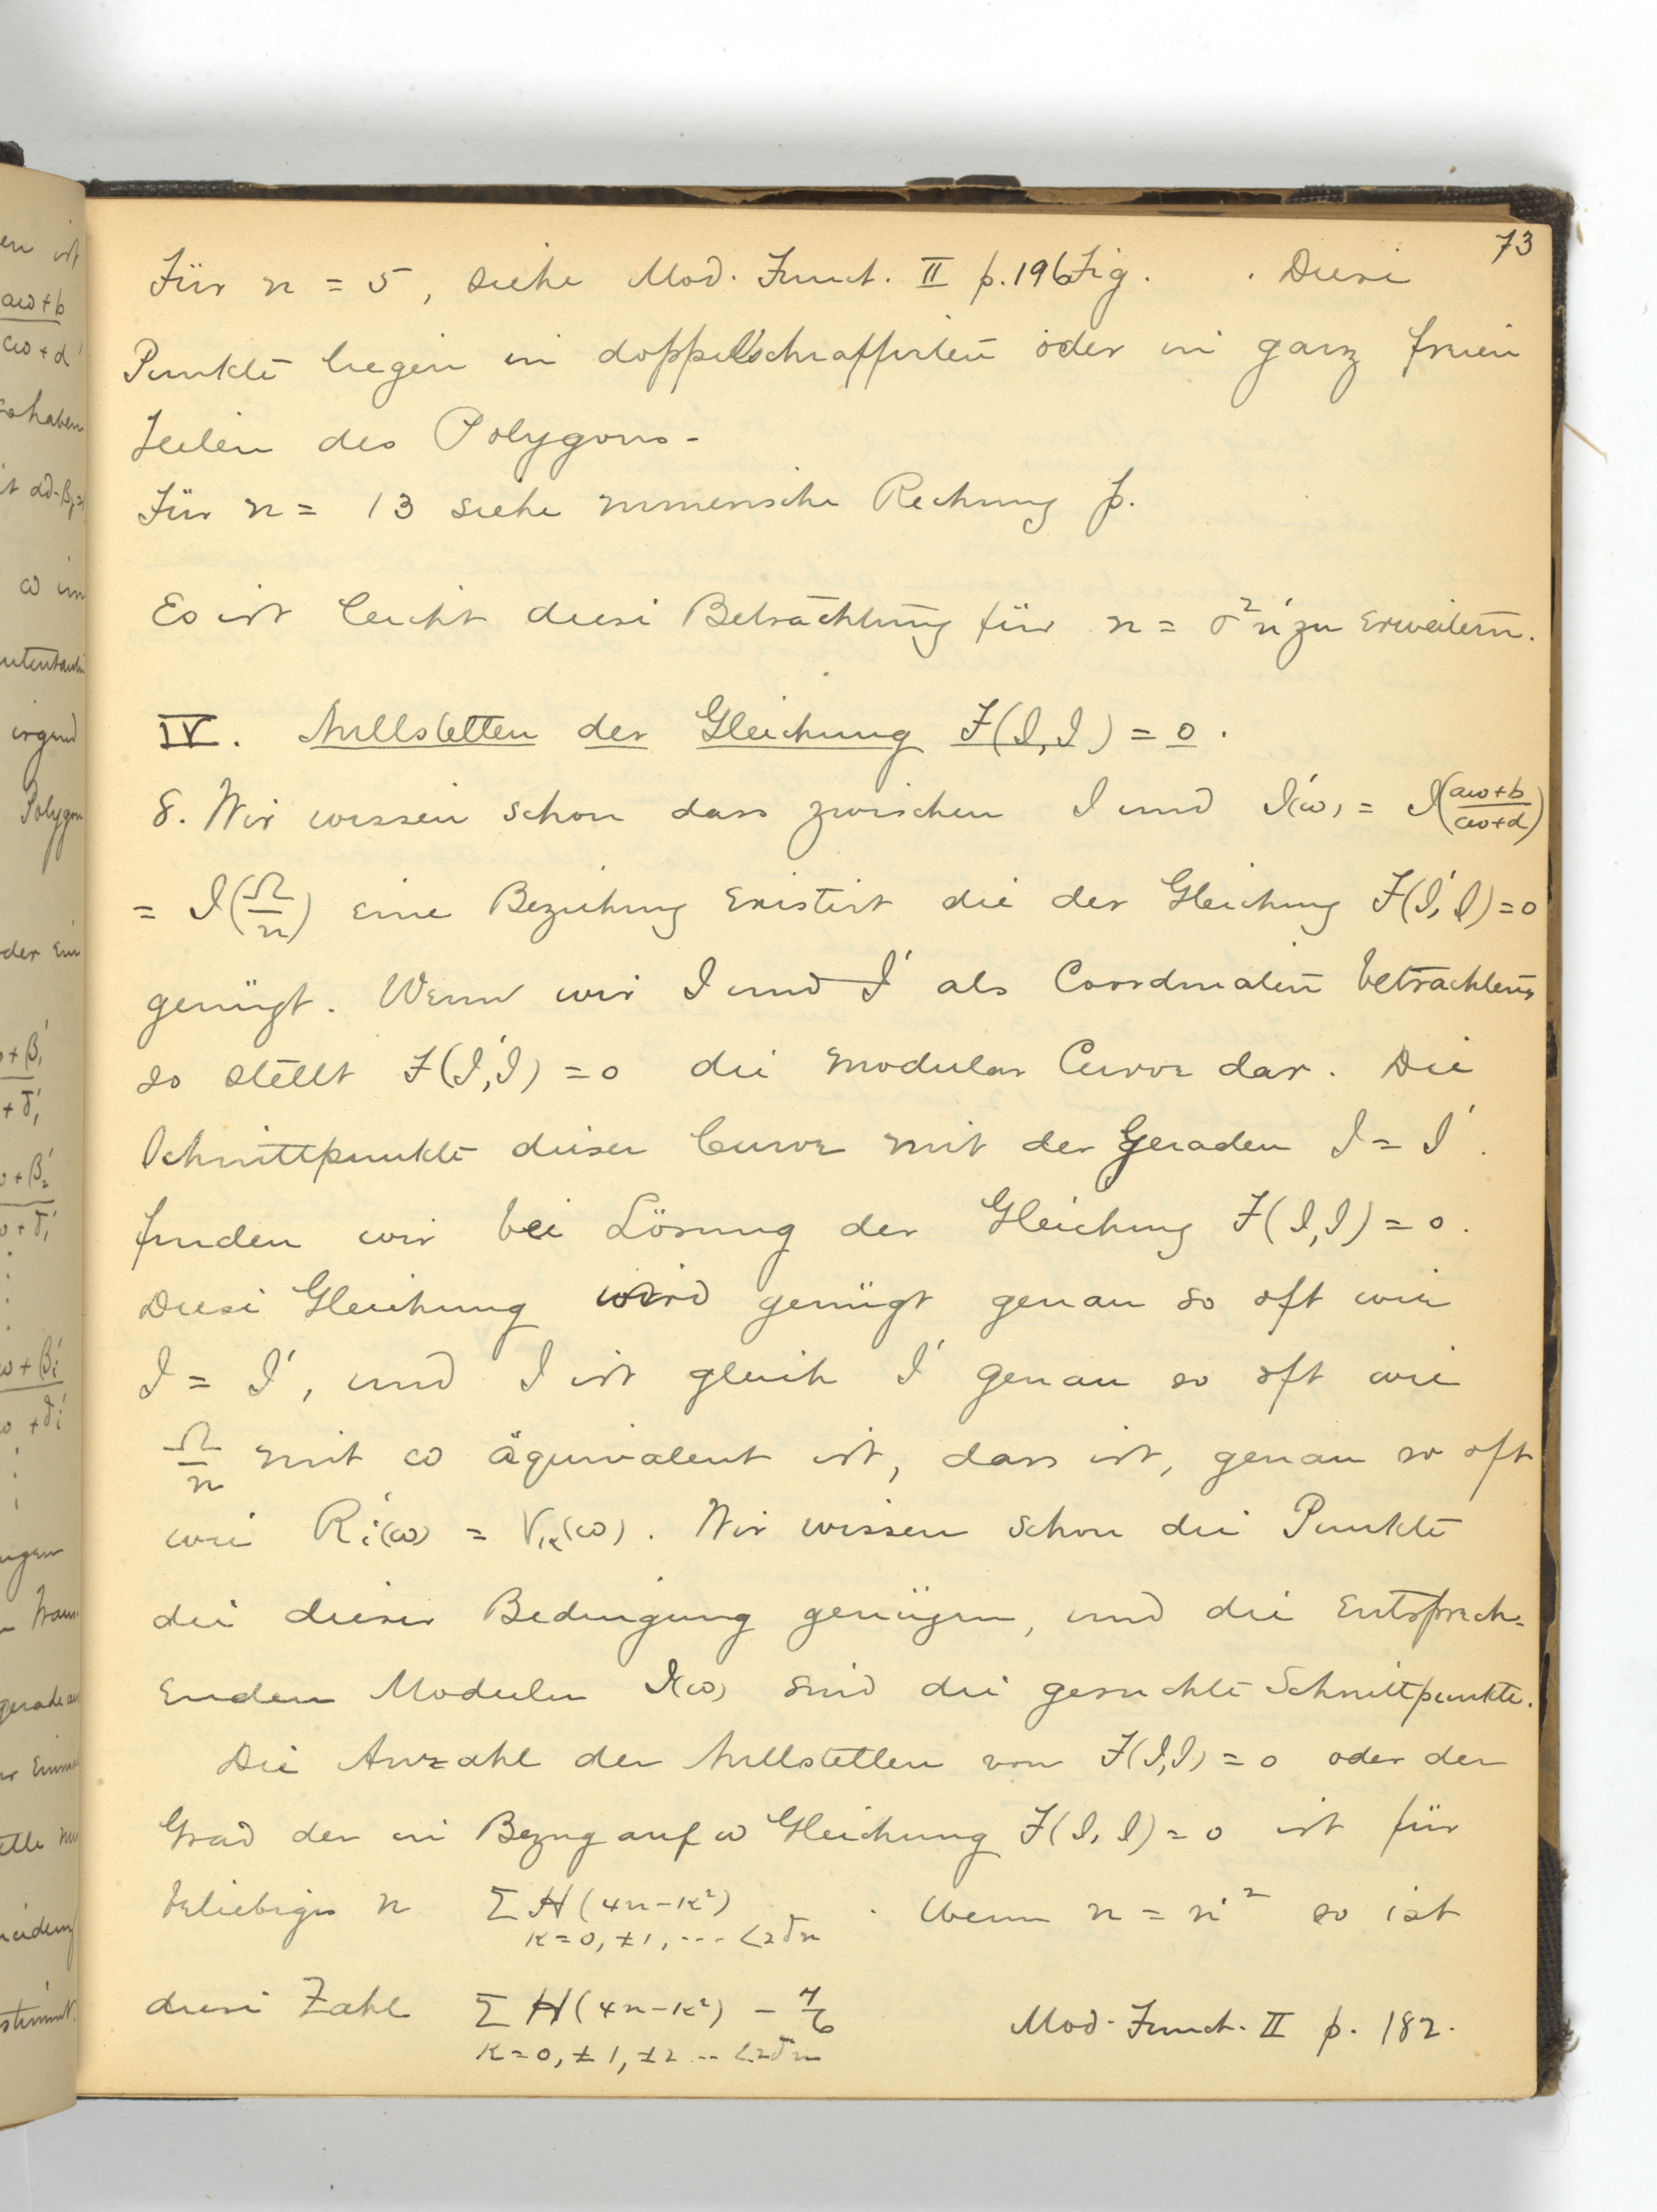 73
Für n = 5, siehe Mod. Funct. II p. 196 Fig. . Diese
Punkte liegen in doppeltschraffirten oder in ganz freien
Teilen des Polygons.
Für n = 13 siehe numerische Rechnung p.
Es ist leicht diese Betrachtung für n = σ²n' zu erweitern.
IV. Nullstellen der Gleichung F(J, J) = 0.
8. Wir wissen schon dass zwischen J und J'(ω) = J((aω+b)/(cω+d))
= J(Ω/n) eine Beziehung existirt die der Gleichung F(J', J) = 0
genügt. Wenn wir J und J' als Coordinaten betrachten,
so stellt F(J', J) = 0 die modular Curve dar. Die
Schnittpunkte dieser Curve mit der Geraden J = J'.
finden wir bei Lösung der Gleichung F(J, J) = 0.
Diese Gleichung wird genügt genau so oft wie
J = J', und J ist gleich J' genau so oft wie
Ω/n mit ω äquivalent ist, dass ist, genau so oft
wie R'i(ω) = Vκ(ω). Wir wissen schon die Punkte
die dieser Bedingung genügen, und die Entsprech=
enden Moduln J(ω) sind die gesuchte Schnittpunkte.
Die Anzahl der Nullstellen von F(J, J) = 0 oder der
Grad der in Bezug auf ω Gleichung F(J, J) = 0 ist für
beliebiges n Σ H(4n-κ²) . Wenn n = n'² so ist
κ = 0, ±1, --- <2√n
diese Zahl Σ H(4n-κ²) - 7/6 Mod. Funct. II p. 182.
κ = 0, ±1, ±2 -- <2√n